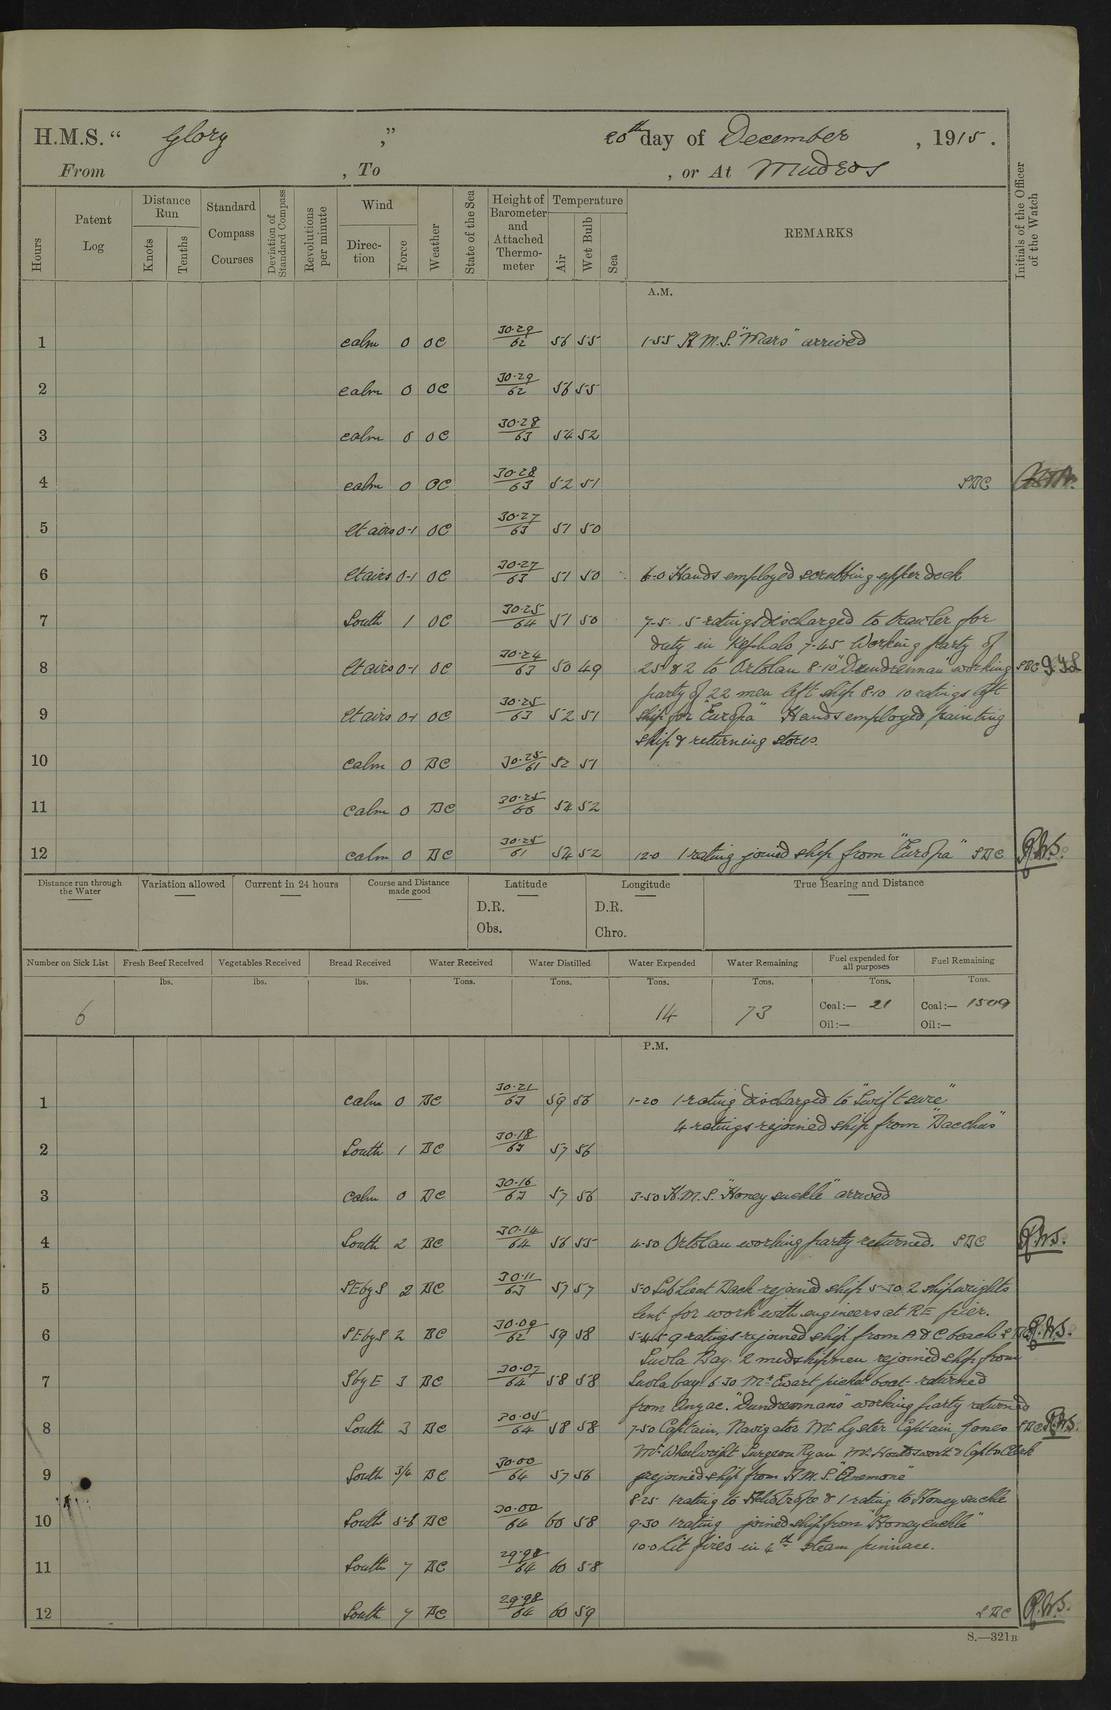 H.M.S. “ Glory ” 20th day of December , 1915 .
From , To , or At Mudros
Hours
Patent Log
Distance Run
Knots
Tenths
Standard Compass Courses
Deviation of Standard Compass
Revolutions per minute
Wind
Direc-tion
Force
Weather
State of the Sea
Height of Barometer and Attached Thermo-meter
Temperature
Air
Wet Bulb
Sea
REMARKS
Initials of the Officer of the Watch
A.M.
1 calm 0 OC 30.29/62 56 55 1.55 H.M.S. "Wars" arrived
2 calm 0 OC 30.29/62 56 55
3 calm 0 OC 30.28/63 54 52
4 calm 0 OC 30.28/63 52 51 SBC
5 lt airs 0-1 OC 30.27/63 51 50
6 lt airs 0-1 OC 30.27/63 51 50 6.0 Hands employed scrubbing upper deck
7 South 1 OC 30.25/64 51 50 7.5. 5 ratings discharged to trawler for
duty in Kephalo 7.45 Working party of
8 lt airs 0-1 OC 30.24/63 50 49 25 & 2 to Ortolan 8.10 "Dundrennan" working SBC
party of 22 men left ship 8.10 10 ratings left
9 lt airs 0-1 OC 30.25/63 52 51 ship for "Europa" Hands employed painting
ship & returning stores.
10 calm 0 BC 30.25/61 52 51
11 calm 0 BC 30.25/60 54 52
12 calm 0 BC 30.25/61 54 52 12.0 1 rating joined ship from "Europa" SBC R.W.S.
Distance run through the Water
Variation allowed
Current in 24 hours
Course and Distance made good
Latitude
D.R.
Obs.
Longitude
D.R.
Chro.
True Bearing and Distance
Number on Sick List
Fresh Beef Received
Vegetables Received
Bread Received
Water Received
Water Distilled
Water Expended
Water Remaining
Fuel expended for all purposes
Fuel Remaining
lbs. lbs. lbs. Tons. Tons. Tons. Tons. Tons. Tons.
6 14 73 Coal:— 21 Coal:— 1509
Oil:— Oil:—
P.M.
1 calm 0 BC 30.21/63 59 56 1-20 1 rating discharged to "Swiftsure"
4 ratings rejoined ship from "Bacchus"
2 South 1 BC 30.18/63 57 56
3 calm 0 BC 30.16/63 57 56 3.50 H.M.S. "Honeysuckle" arrived
4 South 2 BC 30.14/64 56 55 4.50 Ortolan working party returned. SBC R.W.S.
5 SEbyS 2 BC 30.11/63 57 57 5.0 Sub Lieut Back rejoined ship 5-30 2 shipwrights
lent for work with engineers at RE pier.
6 SEbyS 2 BC 30.09/62 59 58 5.45 9 ratings rejoined ship from A & C beach SBC R.W.S.
Suvla Bay. 2 midshipmen rejoined ship from
7 SbyE 3 BC 30.07/64 58 58 Suvla bay. 6.30 Mr Ewart picket boat returned
from Anzac. "Dundrennans" working party returned
8 South 3 BC 30.05/64 58 58 7-50 Captain, Navigator Mr Lyster Captain Jones SBC R.W.S.
Mr Wheelwright Surgeon Ryan Mr Houldsworth & Capts Clerk
9 South 3/4 BC 30.00/64 57 56 rejoined ship from H.M.S. "Anemone"
8.25 1 rating to Heliotrope & 1 rating to Honeysuckle
10 South 5-6 BC 30.00/64 60 58 9.30 1 rating joined ship from "Honeysuckle"
10.0 Lit fires in 4th steam pinnace.
11 South 7 BC 29.98/64 60 58
12 South 7 BC 29.98/64 60 59 SBC R.W.S.
S.—321B